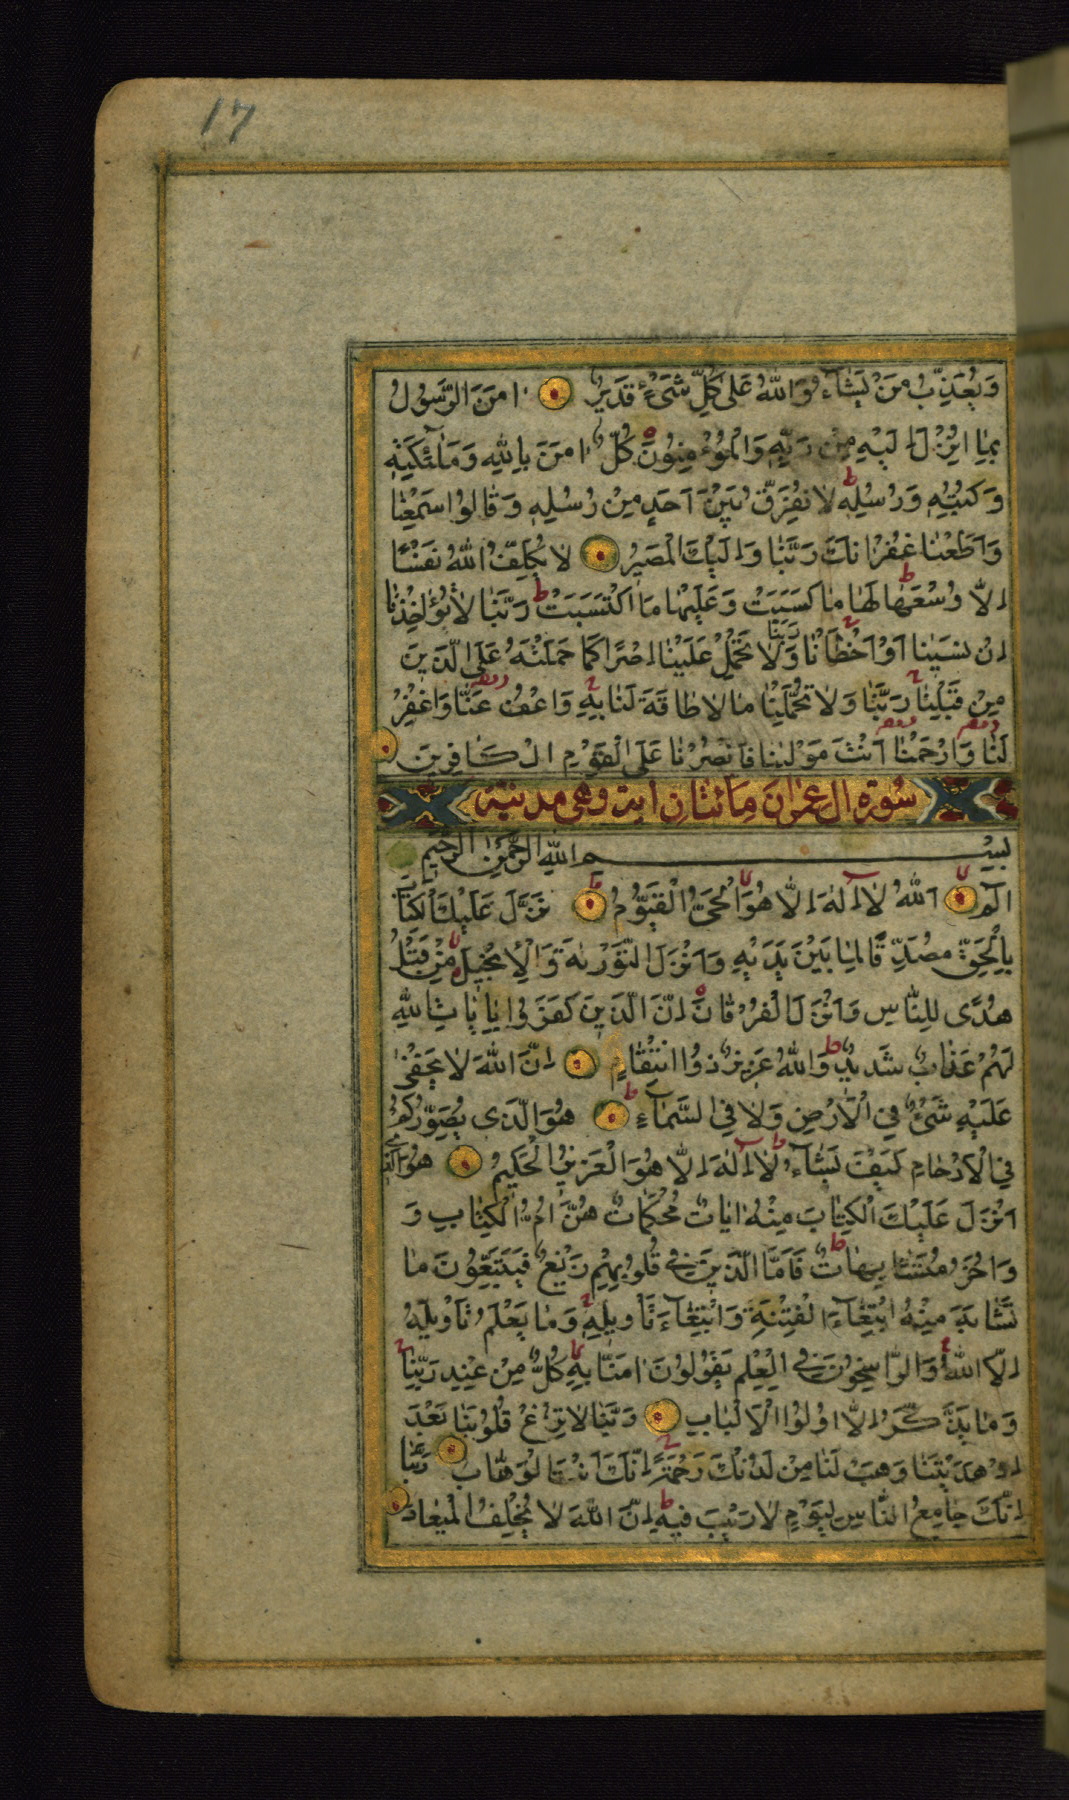 17
وَيُعَذِّبُ مَنْ يَشَآءُ وَاللّٰهُ عَلٰى كُلِّ شَىْءٍ قَدِيرٌ اٰمَنَ الرَّسُولُ
بِمَا اُنْزِلَ اِلَيْهِ مِنْ رَبِّهٖ وَالْمُؤْمِنُونَ كُلٌّ اٰمَنَ بِاللّٰهِ وَمَلٰٓئِكَتِهٖ
وَكُتُبِهٖ وَرُسُلِهٖ لَا نُفَرِّقُ بَيْنَ اَحَدٍ مِنْ رُسُلِهٖ وَقَالُوا سَمِعْنَا
وَاَطَعْنَا غُفْرَانَكَ رَبَّنَا وَاِلَيْكَ الْمَصِيرُ لَا يُكَلِّفُ اللّٰهُ نَفْسًا
اِلَّا وُسْعَهَا لَهَا مَا كَسَبَتْ وَعَلَيْهَا مَا اكْتَسَبَتْ رَبَّنَا لَا تُؤَاخِذْنَا
اِنْ نَسِينَا اَوْ اَخْطَاْنَا رَبَّنَا وَلَا تَحْمِلْ عَلَيْنَا اِصْرًا كَمَا حَمَلْتَهُ عَلَى الَّذِينَ
مِنْ قَبْلِنَا رَبَّنَا وَلَا تُحَمِّلْنَا مَا لَا طَاقَةَ لَنَا بِهٖ وَاعْفُ عَنَّا وَاغْفِرْ
لَنَا وَارْحَمْنَا اَنْتَ مَوْلٰينَا فَانْصُرْنَا عَلَى الْقَوْمِ الْكَافِرِينَ
سُورة اٰل عمران مائتان اية وهى مدنية
بِسْمِ اللّٰهِ الرَّحْمٰنِ الرَّحِيمِ
الٓمٓ اَللّٰهُ لَا اِلٰهَ اِلَّا هُوَ الْحَىُّ الْقَيُّومُ نَزَّلَ عَلَيْكَ الْكِتَابَ
بِالْحَقِّ مُصَدِّقًا لِمَا بَيْنَ يَدَيْهِ وَاَنْزَلَ التَّوْرٰيةَ وَالْاِنْجِيلَ مِنْ قَبْلُ
هُدًى لِلنَّاسِ وَاَنْزَلَ الْفُرْقَانَ اِنَّ الَّذِينَ كَفَرُوا بِاٰيَاتِ اللّٰهِ
لَهُمْ عَذَابٌ شَدِيدٌ وَاللّٰهُ عَزِيزٌ ذُو انْتِقَامٍ اِنَّ اللّٰهَ لَا يَخْفٰى
عَلَيْهِ شَىْءٌ فِى الْاَرْضِ وَلَا فِى السَّمَآءِ هُوَ الَّذِى يُصَوِّرُكُمْ
فِى الْاَرْحَامِ كَيْفَ يَشَآءُ لَا اِلٰهَ اِلَّا هُوَ الْعَزِيزُ الْحَكِيمُ هُوَ الَّذِى
اَنْزَلَ عَلَيْكَ الْكِتَابَ مِنْهُ اٰيَاتٌ مُحْكَمَاتٌ هُنَّ اُمُّ الْكِتَابِ وَ
وَاُخَرُ مُتَشَابِهَاتٌ فَاَمَّا الَّذِينَ فِى قُلُوبِهِمْ زَيْغٌ فَيَتَّبِعُونَ مَا
تَشَابَهَ مِنْهُ ابْتِغَآءَ الْفِتْنَةِ وَابْتِغَآءَ تَاْوِيلِهٖ وَمَا يَعْلَمُ تَاْوِيلَهُ
اِلَّا اللّٰهُ وَالرَّاسِخُونَ فِى الْعِلْمِ يَقُولُونَ اٰمَنَّا بِهٖ كُلٌّ مِنْ عِنْدِ رَبِّنَا
وَمَا يَذَّكَّرُ اِلَّا اُولُوا الْاَلْبَابِ رَبَّنَا لَا تُزِغْ قُلُوبَنَا بَعْدَ
اِذْ هَدَيْتَنَا وَهَبْ لَنَا مِنْ لَدُنْكَ رَحْمَةً اِنَّكَ اَنْتَ الْوَهَّابُ رَبَّنَا
اِنَّكَ جَامِعُ النَّاسِ لِيَوْمٍ لَا رَيْبَ فِيهِ اِنَّ اللّٰهَ لَا يُخْلِفُ الْمِيعَادَ